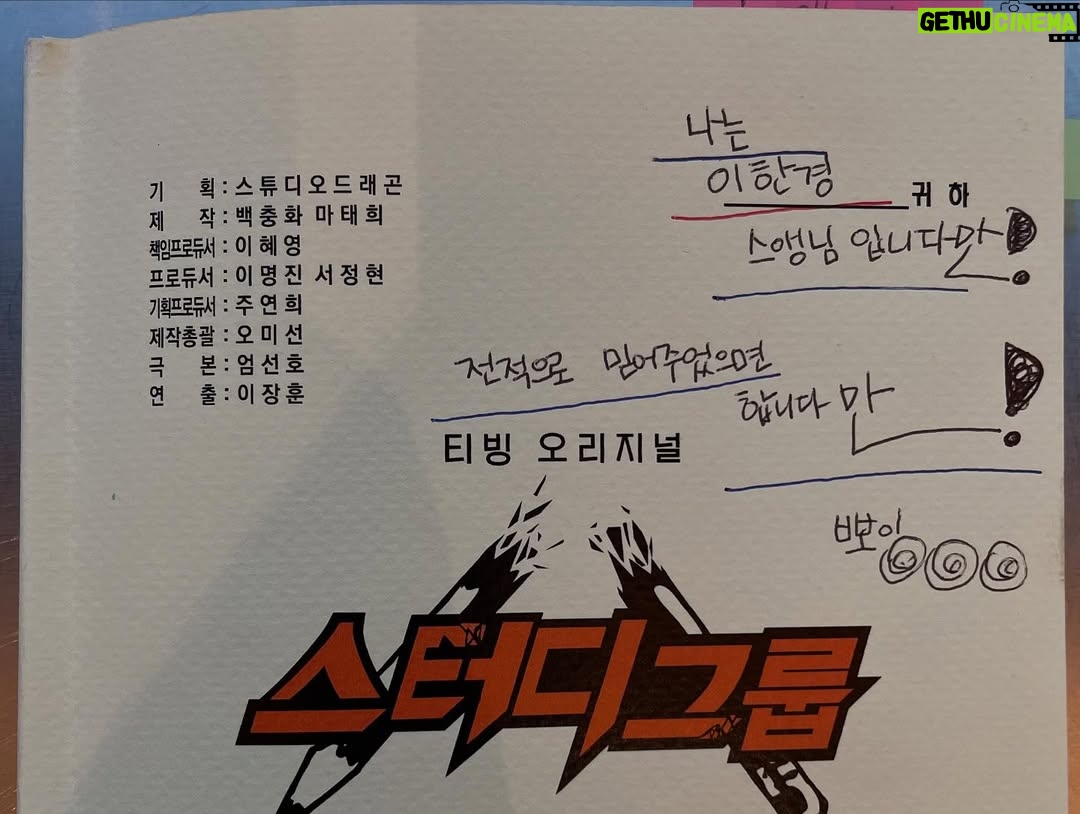 GETHUCINEMA
나는
이한경 귀하
스앵님 입니다만!
기 획 : 스튜디오드래곤
제 작 : 백충화 마태희
책임프로듀서 : 이혜영
프로듀서 : 이명진 서정현
기획프로듀서 : 주연희
제작총괄 : 오미선
극 본 : 엄선호
연 출 : 이장훈
전적으로 믿어주었으면
합니다만!
티빙 오리지널
뽀이
스터디그룹